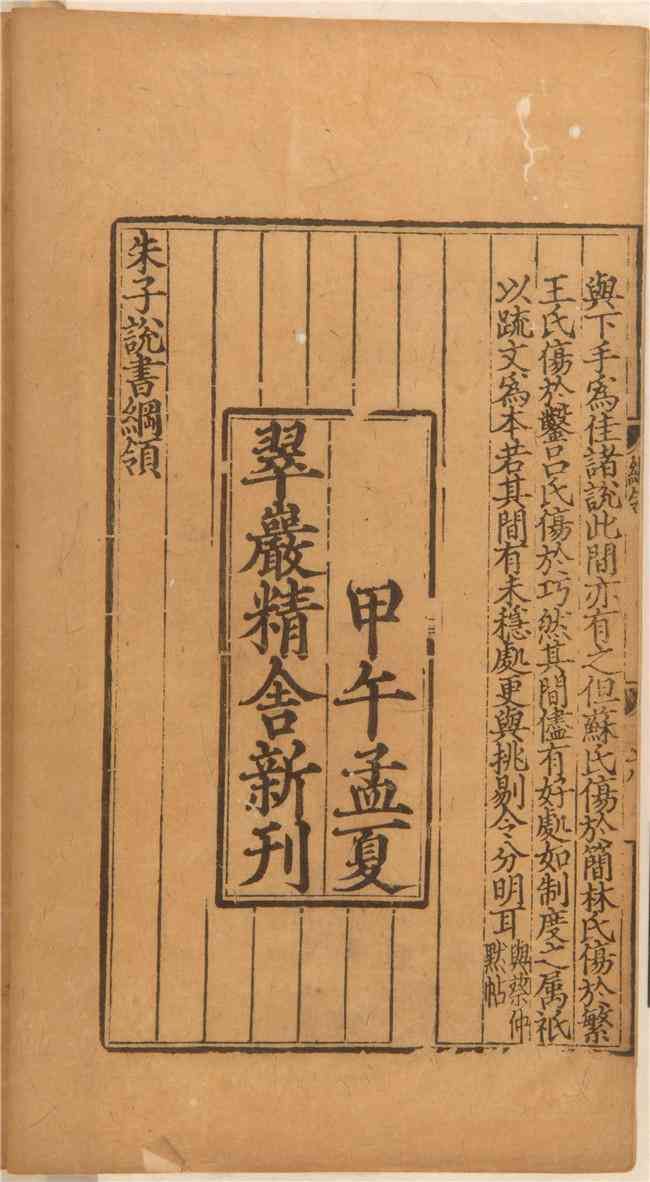 與下手爲佳諸說此間亦有之但蘇氏傷於簡林氏傷於繁
王氏傷於鑿吕氏傷於巧然其間儘有好處如制度之属祇
以疏文爲本若其間有未穩處更與挑剔令分明耳與蔡仲默帖
甲午孟夏
翠巖精舍新刊
朱子說書綱領